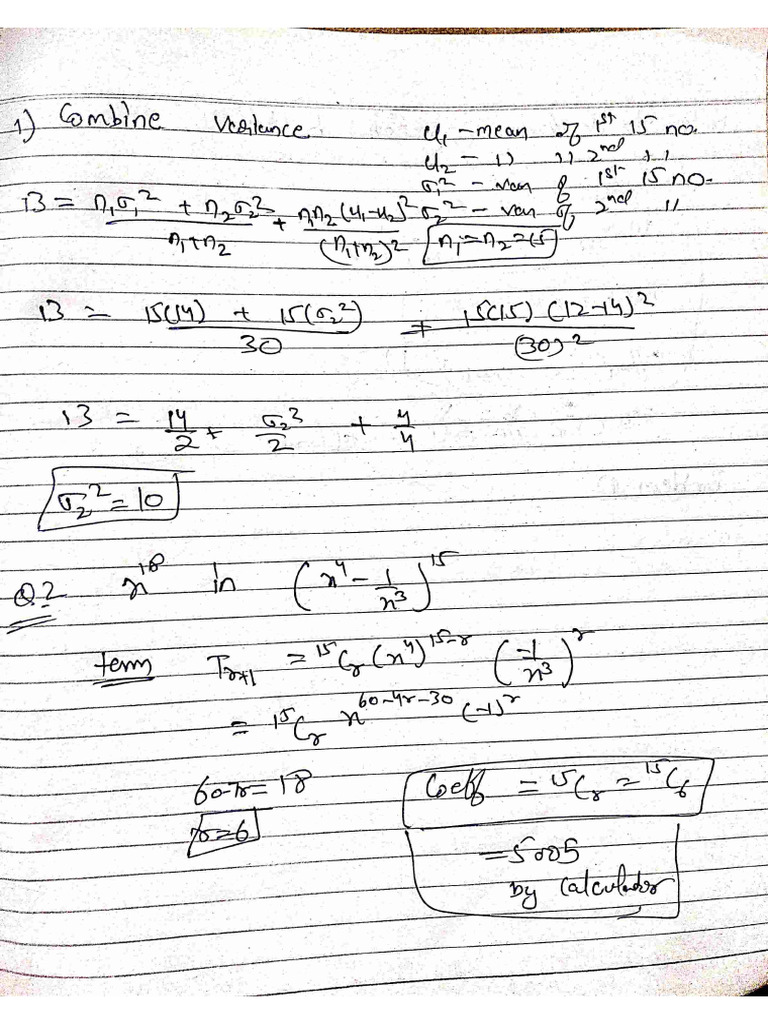 1) Combine Variance u₁ - mean of 1st 15 no.
u₂ - 11 11 2nd 11
σ₁² - van of 1st 15 no.
13 = (n₁σ₁² + n₂σ₂²)/(n₁+n₂) + n₁n₂(u₁-u₂)²/(n₁+n₂)² σ₂² - van of 2nd 11
n₁=n₂=15
13 = (15(14) + 15(σ₂²))/30 + 15(15)(12-14)²/(30)²
13 = 14/2 + σ₂²/2 + 4/4
σ₂² = 10
Q.2 x¹⁸ in (x⁴ - 1/x³)¹⁵
term Tᵣ₊₁ = ¹⁵Cᵣ (x⁴)¹⁵⁻ʳ (-1/x³)ʳ
= ¹⁵Cᵣ x⁶⁰⁻⁴ʳ⁻³⁰ (-1)ʳ
60-7r = 18
r=6
Coeff = ¹⁵Cᵣ = ¹⁵C₆
= 5005
by calculator